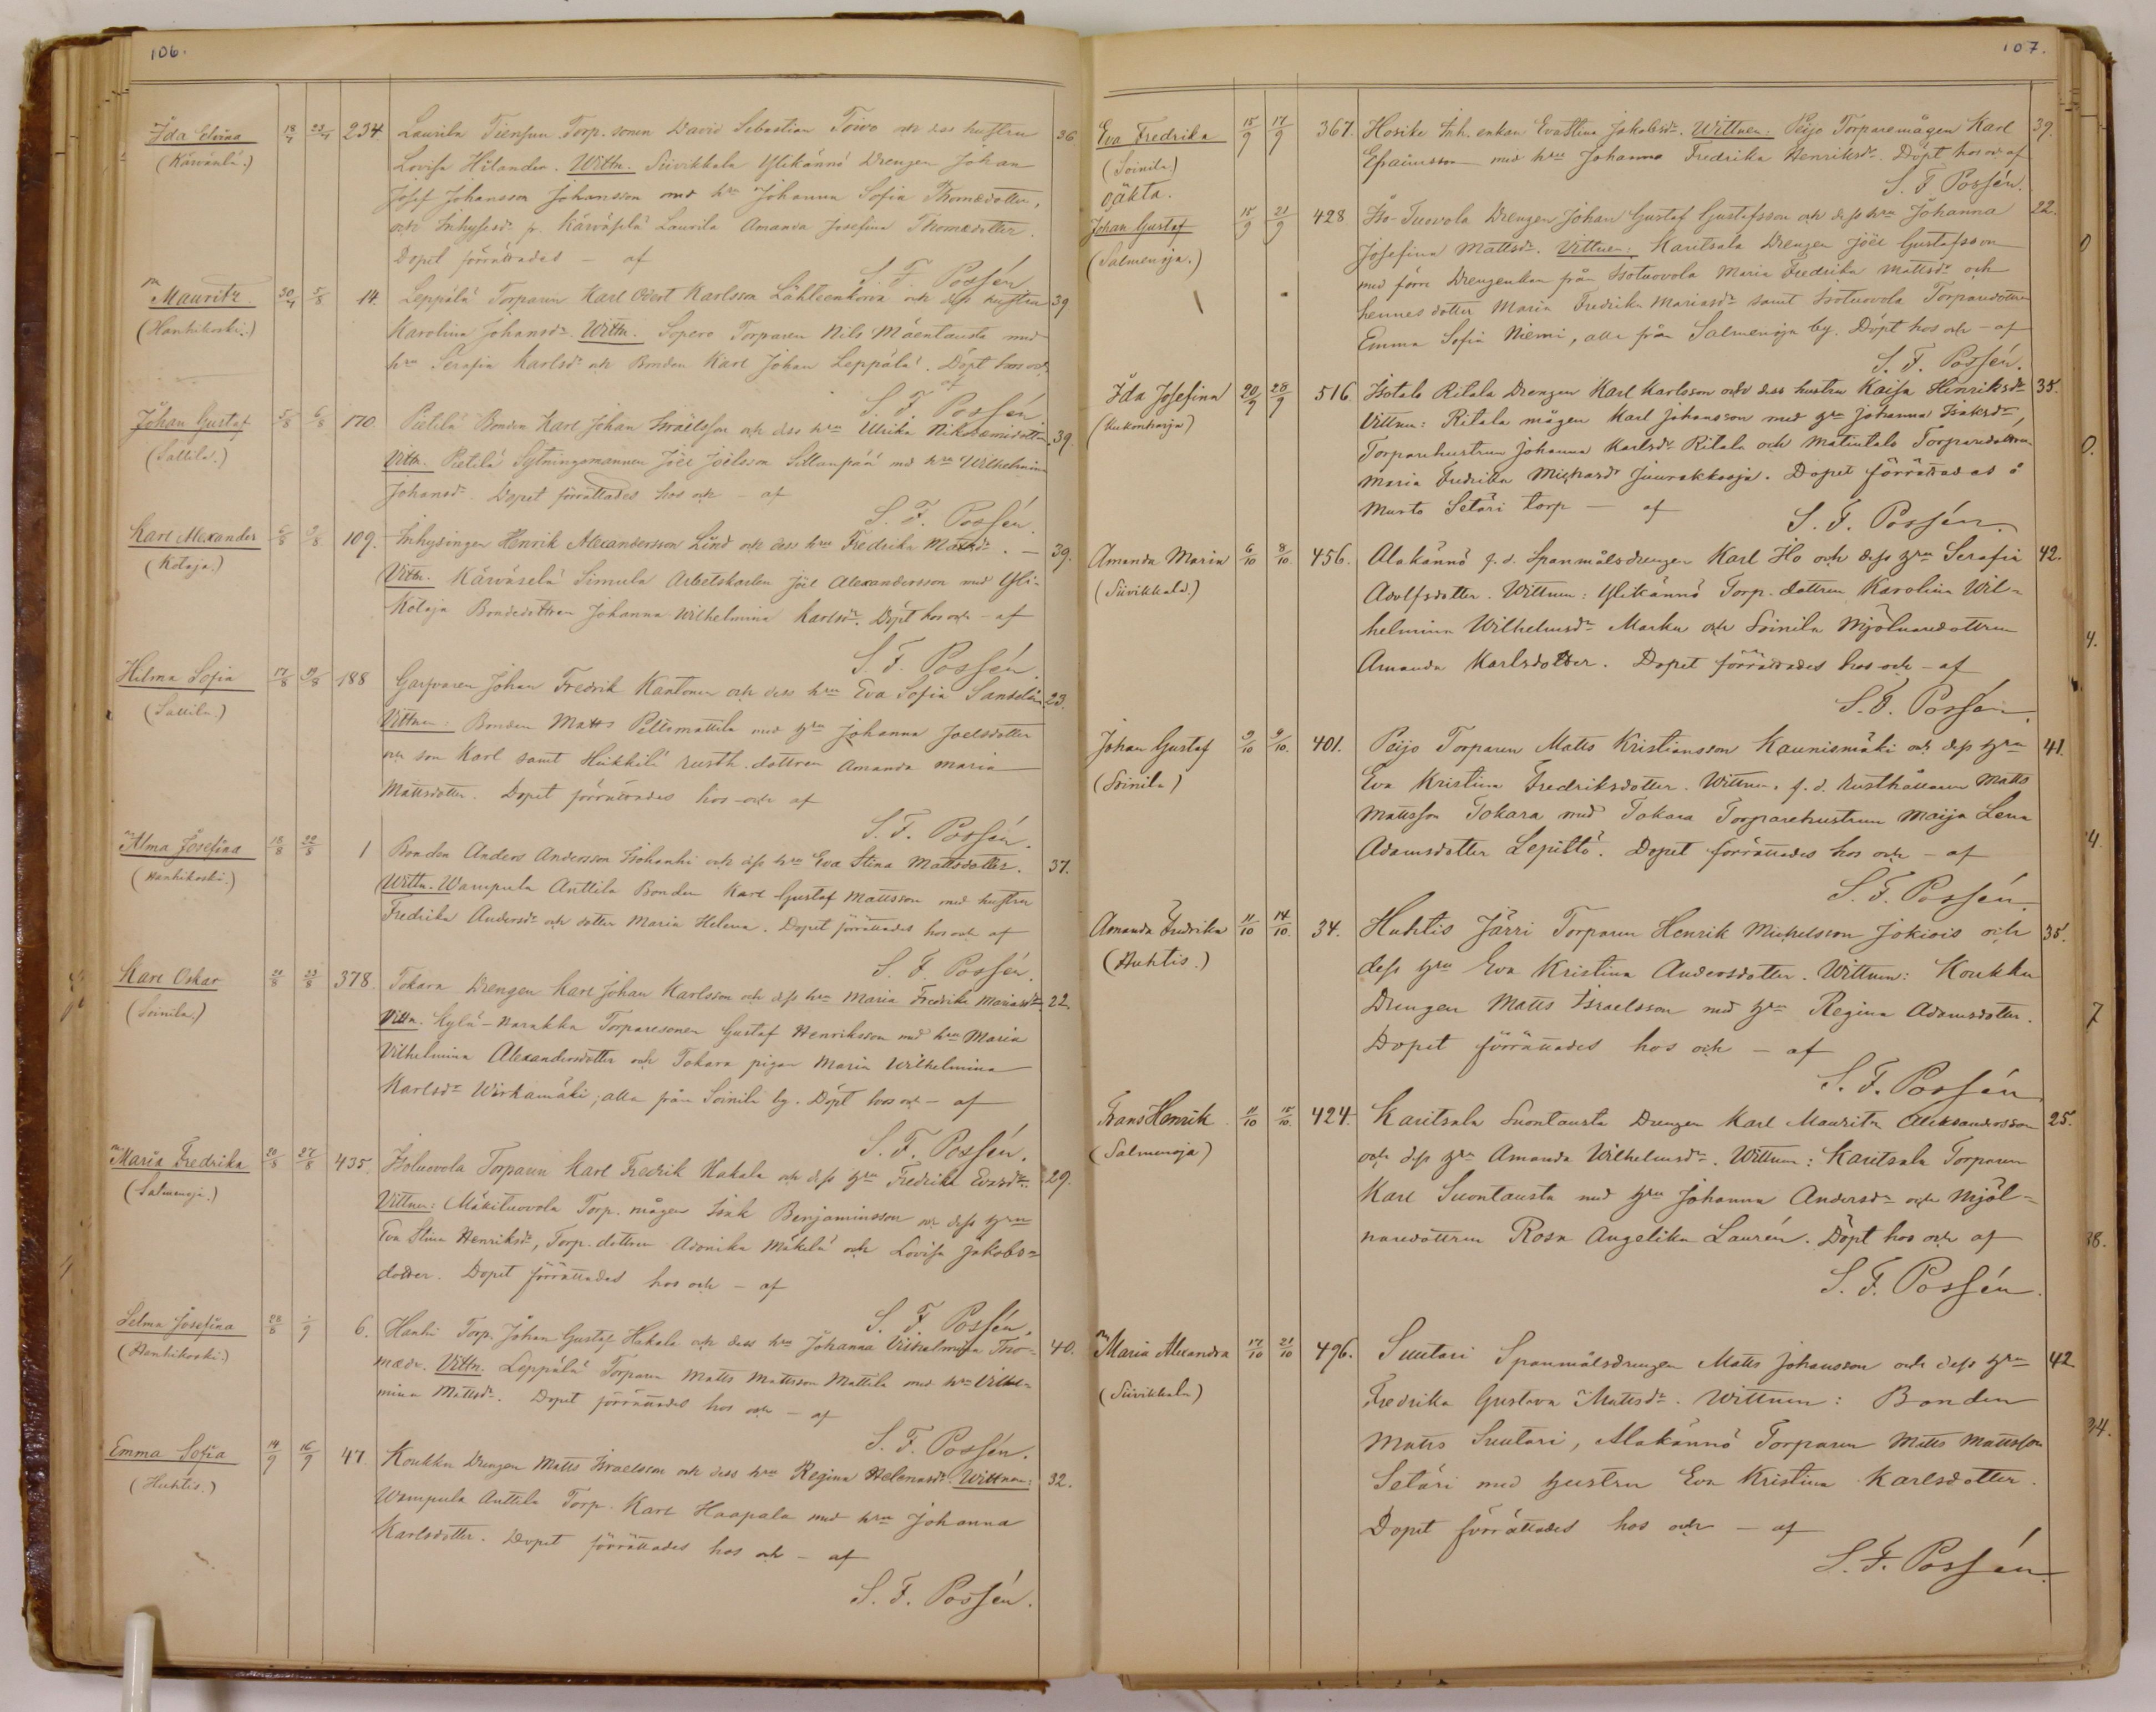 106.
Ida Elvina 18/7 23/7 234 Laurila Tiensun Torp. sonen David Sebastian Toivo och dess hustru 36
(Kärväselä.) Lovisa Hilander. Wittn. Siivikkala Ylikännö Drengen Johan
Josef Johansson Johansson med hru Johanna Sofia Thomædotter,
och Inhyses dr fr. Kärväselä Laurila Amanda Josefina Thomædotter.
Dopet förrättades - af
S. F. Possén
Mauritz 30/7 5/8 14. Leppälä Torparen Karl Karlsson Lähteenkorva och dess hustru 39
(Hanhikoski.) Karolina Johansdr. Wittn. Sopero Torparen Nils Mäentausta med
hru Serafia Karlsdr och Bonden Karl Johan Leppälä. Döpt hos och
af
S. F. Possén
Johan Gustaf 5/8 6/8 170. Pietilä Bonden Karl Johan Israelsson och dess hru Ulrika Nikodemidotter 39.
(Sallila.) Vittn. Pietilä Sytningsmannen Joel Joelsson Sillanpää med hru Wilhelmina
Johansdr. Dopet förrättades hos och - af
S. F. Possén
Karl Alexander 6/8 9/8 109. Inhysingen Henrik Alexandersson Lind och dess hru Fredrika Mattsdr. — 39.
(Kotaja.) Vittn. Kärväselä Simula Arbetskarlen Joel Alexandersson med Yli-
Kotaja Bondedottren Johanna Wilhelmina Karlsdr. Döpt hos och - af
S. F. Possén.
Hilma Sofia 17/8 19/8 188 Garfvaren Johan Fredrik Kantonen och dess hru Eva Sofia Sandelin 23.
(Sallila.) Vittnen: Bonden Matts Peltomattila med hru Johanna Joelsdotter
och son Karl samt Heikkilä rusth. dottren Amanda Maria
Mattsdotter. Dopet förrättades hos och af
S. F. Possén.
Alma Josefina 18/8 22/8 1 Bonden Anders Andersson Isohanhi och dess hru Eva Stina Mattsdotter. 37.
(Hanhikoski.) Wittn. Wampula Anttila Bonden Karl Gustaf Mattsson med hustru
Fredrika Andersdr och dotter Maria Helena. Dopet förrättades hos och af
S. F. Possén.
Karl Oskar 21/8 23/8 378. Tokara Drengen Karl Johan Karlsson och dess hru Maria Fredrika Mariasdr 22.
(Soinila.) Vittn. Kylä-Narakka Torparesonen Gustaf Henriksson med hru Maria
Vilhelmina Alexandersdotter och Tokara pigan Maria Wilhelmina
Karlsdr Wirkamäki; alla från Soinila by. Döpt hos och - af
S. F. Possén.
Maria Fredrika 20/8 27/8 435. Isotuovola Torparen Karl Fredrik Hakala och dess hru Fredrika Evasdr. 29.
(Salmenoja.) Vittnen: Mäkituovola Torp. mågen Isak Benjaminsson och dess hru
Eva Stina Henriksdr, Torp. dottren Adonika Mäkelä och Lovisa Jakobs-
dotter. Dopet förrättades hos och - af
S. F. Possén.
Selma Josefina 28/8 1/9 6. Hanhi Torp. Johan Gustaf Hakala och dess hru Johanna Vilhelmina Tho- 40.
(Hanhikoski.) mædr. Vittn. Leppälä Torparen Matts Mattsson Mattila med hru Vilhel-
mina Mattsdr. Dopet förrättades hos och - af
S. F. Possén.
Emma Sofia 14/9 16/9 47. Koukku Drengen Matts Israelsson och dess hru Regina Helenasdr. Wittnen: 32.
(Huhtis.) Wampula Anttila Torp. Karl Haapala med hru Johanna
Karlsdotter. Dopet förrättades hos och - af
S. F. Possén.
107.
Eva Fredrika 15/9 17/9 367. Hosike Inh. enkan Eva Stina Jakobsdr. Wittnen: Peijo Torparemågen Karl 39.
(Soinila.) Efraimsson med hru Johanna Fredrika Henriksdr. Döpt hos och af
oäkta. S. F. Possén.
Johan Gustaf 15/9 21/9 428 Iso-Tuovola Drengen Johan Gustaf Gustafsson och dess hru Johanna 22.
(Salmenoja.) Josefina Mattsdr. Vittnen: Karitsala Drengen Joel Gustafsson
med förre Drengenkan från Isotuovola Maria Fredrika Mattsdr och
hennes dotter Maria Fredrika Mariasdr samt Isotuovola Torparedottren
Emma Sofia Niemi, alla från Salmenoja by. Döpt hos och - af
S. F. Possén.
Ida Josefina 20/9 28/9 516. Isotalo Ritala Drengen Karl Karlsson och dess hustru Kaisa Henriksdr 35.
(Kukonharja) Vittnen: Ritala mågen Karl Johansson med hru Johanna Isaksdr,
Torparehustrun Johanna Karlsdr Ritala och Matintalo Torparedottren
Maria Fredrika Michaelsdr Juurakkooja. Dopet förrättades å
Murto Setäri torp — af
S. F. Possén.
Amanda Maria 6/10 8/10 456. Alakännö f. d. Spanmålsdrengen Karl Ilo och dess hru Serafia 42.
(Siivikkala.) Adolfsdotter. Wittnen: Ylikännö Torp. dottren Karolina Wil-
helmina Wilhelmsdr Marku och Soinila Mjölnaredottren
Amanda Karlsdotter. Dopet förrättades hos och - af
S. F. Possén.
Johan Gustaf 9/10 9/10. 401. Peijo Torparen Matts Kristiansson Kaunismäki och dess hru 41.
(Soinila) Eva Kristina Fredriksdotter. Wittnen: f. d. Rusthållaren Matts
Mattsson Tokara med Tokara Torparehustrun Maija Lena
Adamsdotter Lepistö. Dopet förrättades hos och - af
S. F. Possén.
Amanda Fredrika 11/10 14/10. 34. Huhtis Järri Torparen Henrik Michelsson Jokiois och 35.
(Huhtis.) dess hru Eva Kristina Andersdotter. Wittnen: Koukku
Drengen Matts Israelsson med hru Regina Adamsdotter.
Dopet förrättades hos och - af
S. F. Possén
Frans Henrik 11/10 15/10. 424. Karitsala Suontausta Drengen Karl Mauritz Aleksandersson 25.
(Salmenoja) och dess hru Amanda Wilhelmsdr. Wittnen: Karitsala Torparen
Karl Suontausta med hru Johanna Andersdr och Mjöl-
naredottren Rosa Angelika Laurén. Döpt hos och af
S. F. Possén.
Maria Alexandra 17/10 21/10 496. Suutari Spanmålsdrengen Matts Johansson och dess hru 42
(Siivikkala) Fredrika Gustava Mattsdr. Wittnen: Bonden
Matts Suutari, Alakännö Torparen Matts Mattsson
Setäri med hustru Eva Kristina Karlsdotter.
Dopet förrättades hos och - af
S. F. Possén.